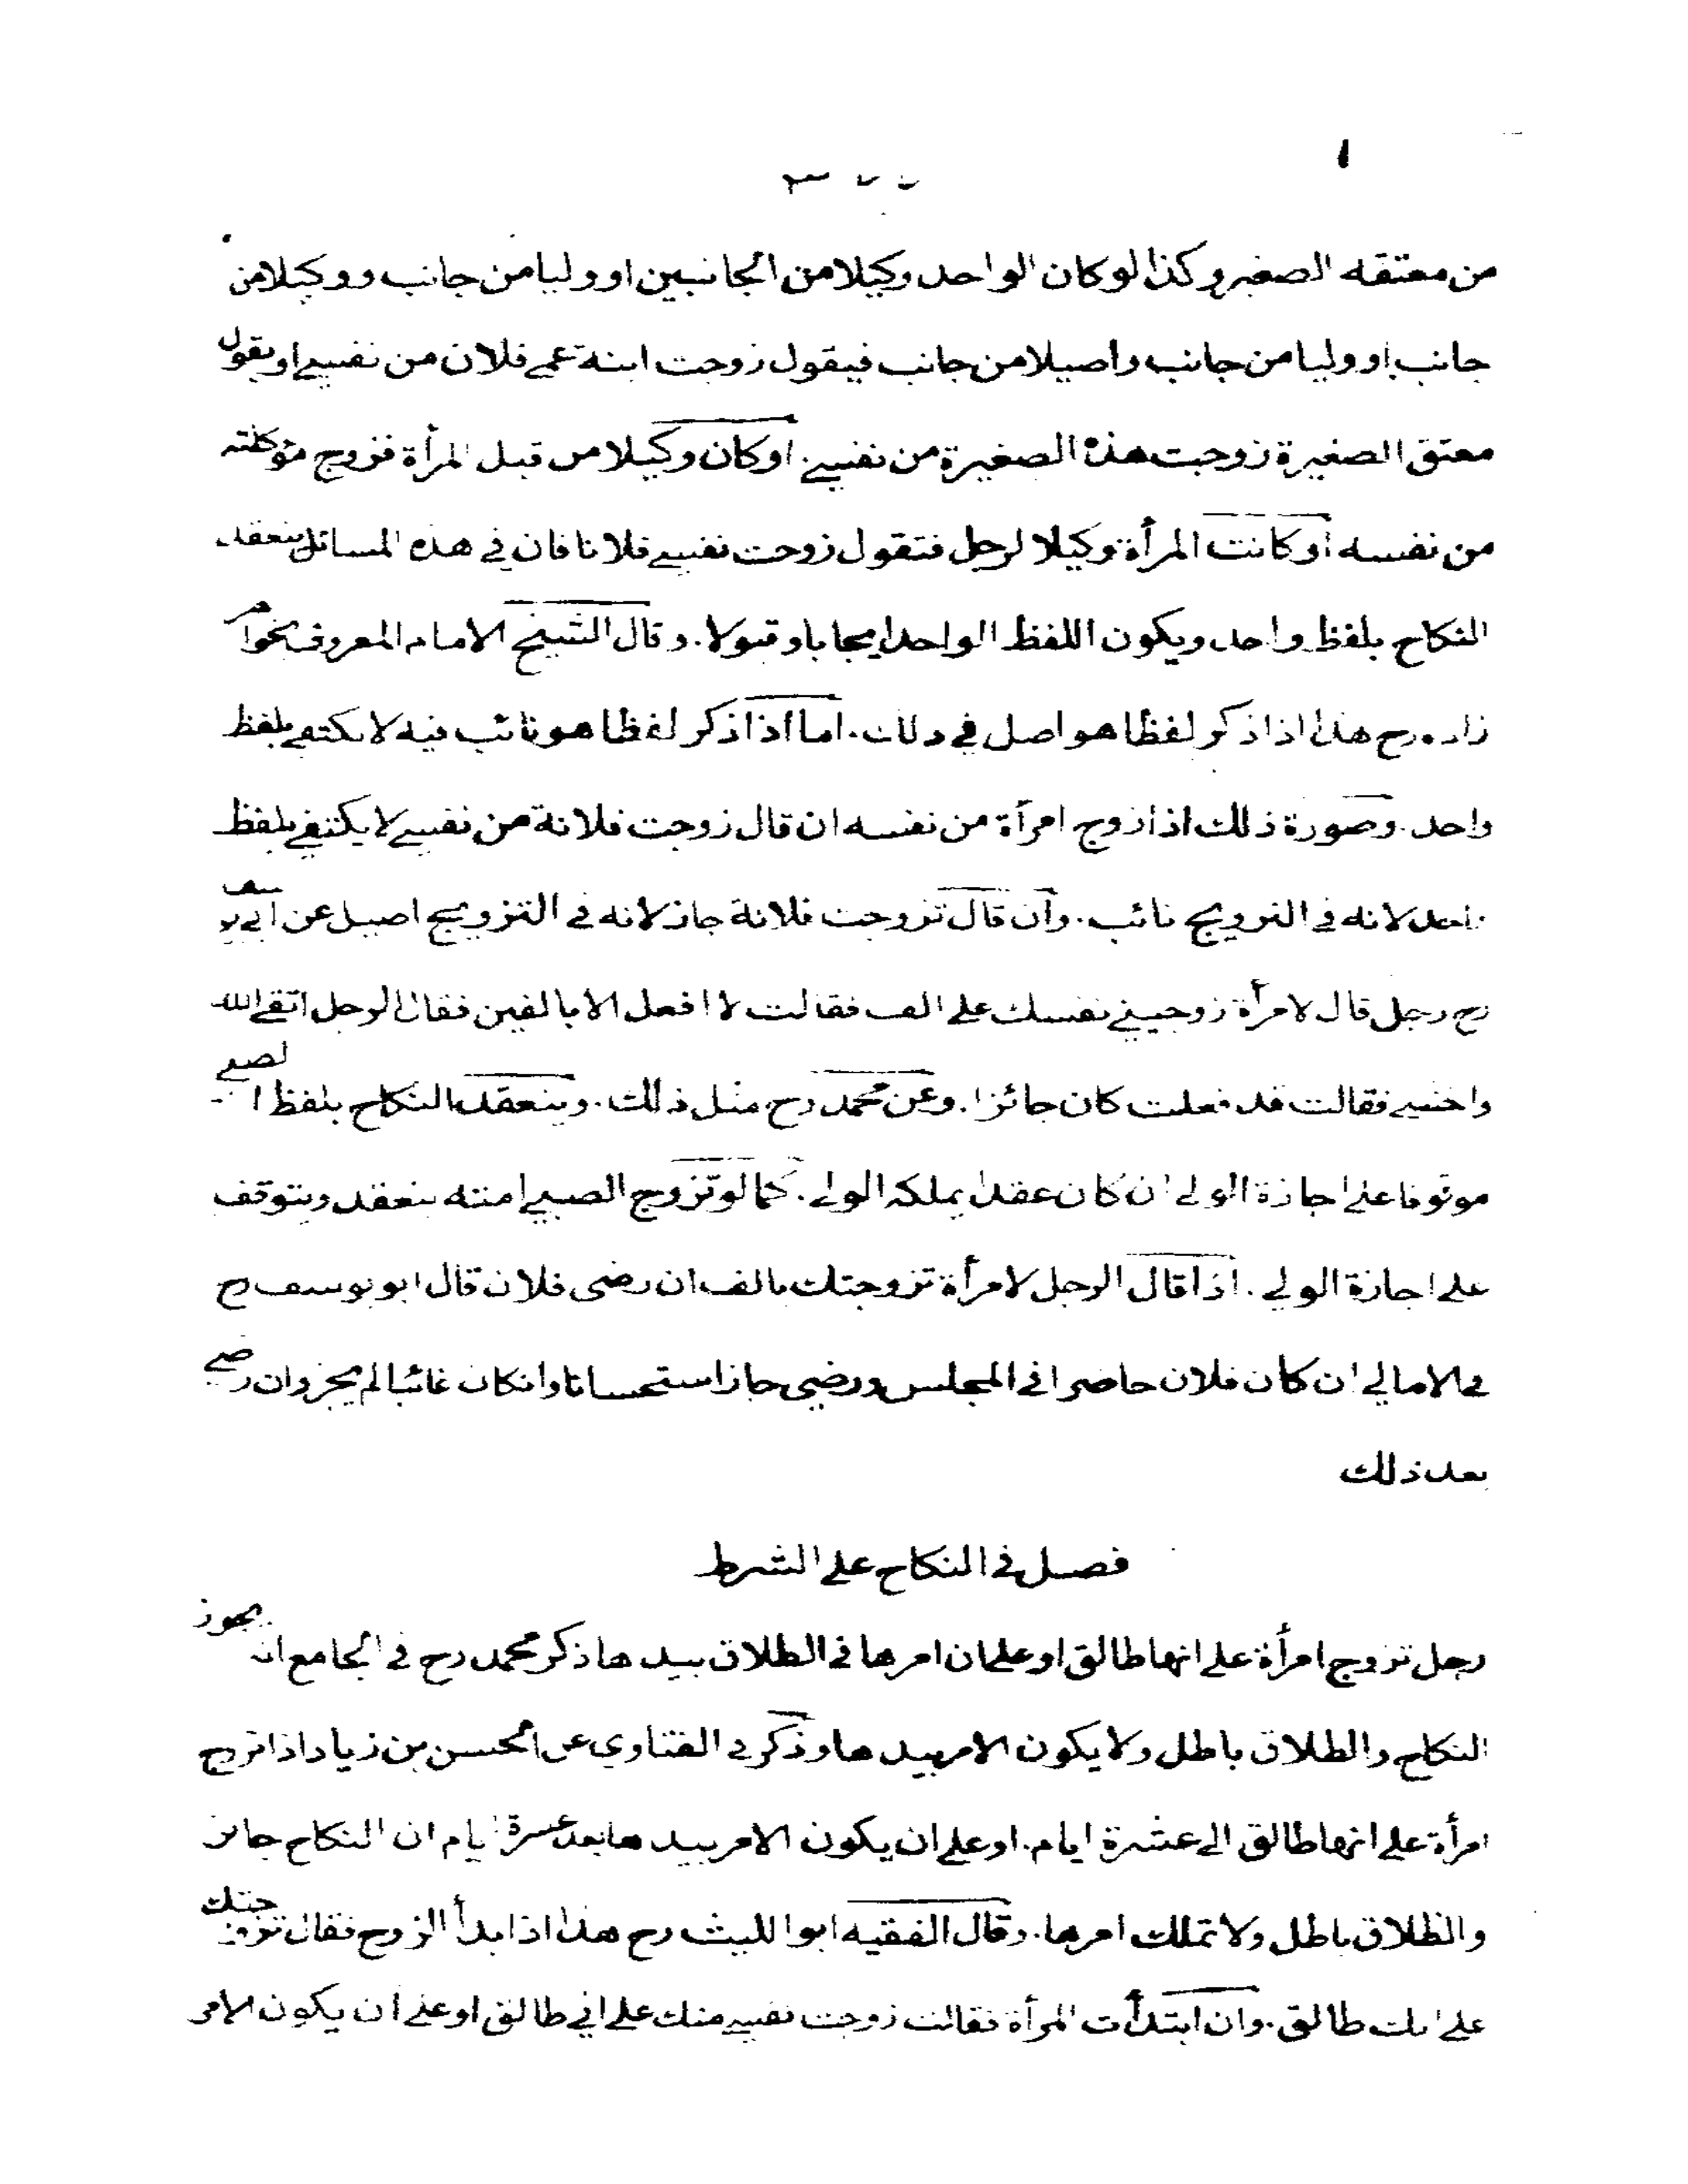 من معتقه الصغير وكذا لو كان الواحد وكيلا من الجانبين او وليا من جانب ووكيلا من
جانب او وليا من جانب واصيلا من جانب فيقول زوجت ابنة عمي فلان من نفسي او يقول
معتق الصغيرة زوجت هذه الصغيرة من نفسي. او كان وكيلا من قبل المرأة فزوج موكلته
من نفسه او كانت المرأة وكيلا لرجل فتقول زوجت نفسي فلانا فان في هذه المسائل ينعقد
النكاح بلفظ واحد ويكون اللفظ الواحد ايجابا وقبولا. وقال الشيخ الامام المعروف بخواهر
زاده رح هذا اذا ذكر لفظا هو اصل في ذلك. اما اذا ذكر لفظا هو نائب فيه لا يكتفي بلفظ
واحد. وصورة ذلك اذا زوج امرأة من نفسه ان قال زوجت فلانة من نفسي لا يكتفي بلفظ
واحد لانه في التزويج نائب. وان قال تزوجت فلانة جاز لانه في التزويج اصيل عن ابي يوسف
رح رجل قال لامرأة زوجيني نفسك على الف فقالت لا افعل الا بالفين فقال الرجل اتقي الله
واخشي فقالت قد فعلت كان جائزا. وعن محمد رح مثل ذلك. وينعقد النكاح بلفظ الصبي
موقوفا على اجازة الولي ان كان عقدا يملكه الولي. كما لو تزوج الصبي امته ينعقد ويتوقف
على اجازة الولي. اذا قال الرجل لامرأة تزوجتك بالف ان رضى فلان قال ابو يوسف رح
في الامالي ان كان فلان حاضرا في المجلس ورضي جاز استحسانا وان كان غائبا لم يجز وان رضي
بعد ذلك
فصل في النكاح على الشرط
رجل تزوج امرأة على انها طالق او على ان امرها في الطلاق بيدها ذكر محمد رح في الجامع انه يجوز
النكاح والطلاق باطل ولا يكون الامر بيدها وذكر في الفتاوي عن الحسن بن زياد اذا تزوج
امرأة على انها طالق الى عشرة ايام. او على ان يكون الامر بيدها بعد عشرة ايام ان النكاح جائز
والطلاق باطل ولا تملك امرها. وقال الفقيه ابو الليث رح هذا اذا بدأ الزوج فقال تزوجتك
على انك طالق. وان ابتدأت المرأة فقالت زوجت نفسي منك على اني طالق او على ان يكون الامر